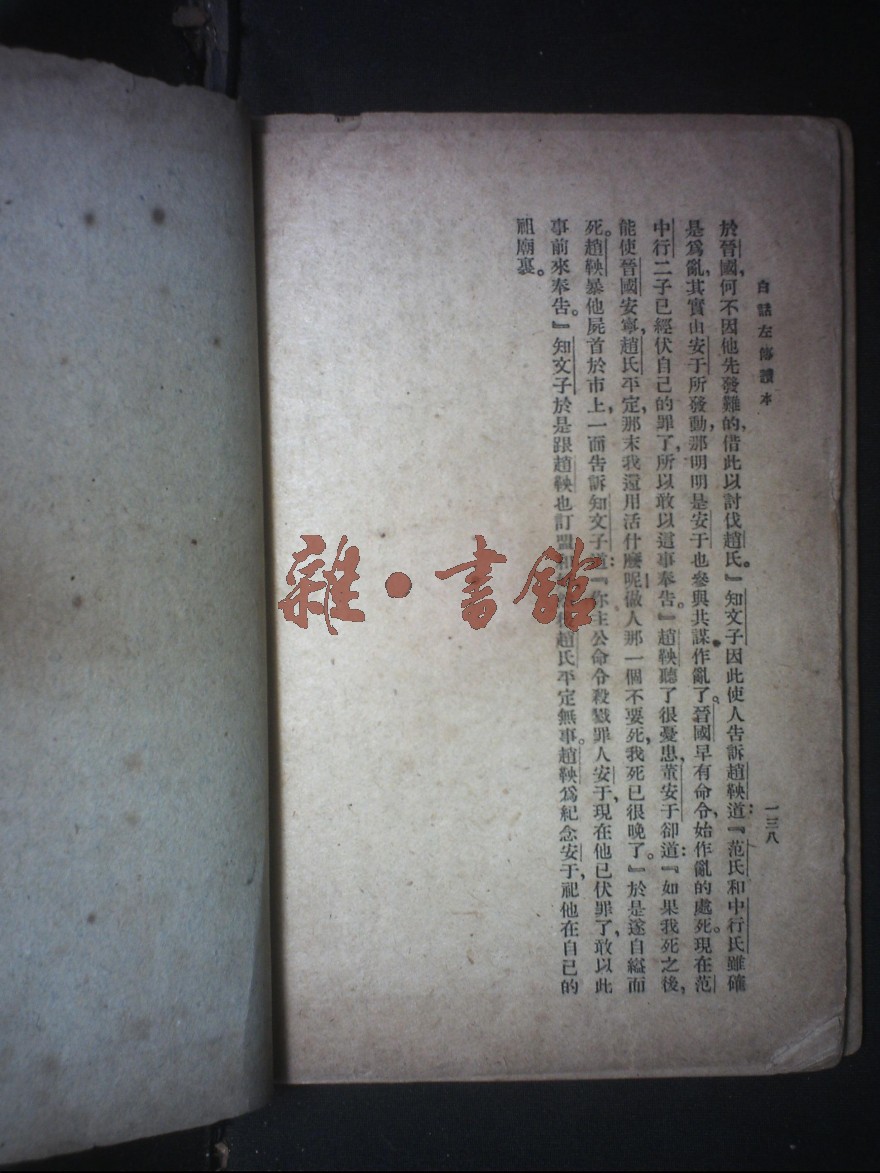 白話左傳讀本
一三八
於晉國,何不因他先發難的,借此以討伐趙氏。』知文子因此使人告訴趙鞅道:『范氏和中行氏雖確
是爲亂,其實由安于所發動,那明明是安于也參與共謀作亂了。晉國早有命令,始作亂的處死。現在范
中行二子已經伏自己的罪了,所以敢以這事奉告。』趙鞅聽了很憂患,董安于卻道:『如果我死之後,
能使晉國安寧,趙氏平定,那末我還用活什麼呢做人那一個不要死,我死已很晚了。』於是遂自縊而
死。趙鞅暴他屍首於市上,一面告訴知文子道:『你主公命令殺戮罪人安于,現在他已伏罪了,敢以此
事前來奉告。』知文子於是跟趙鞅也訂盟和趙氏平定無事。趙鞅爲紀念安于,祀他在自己的
祖廟裏。
雜·書館